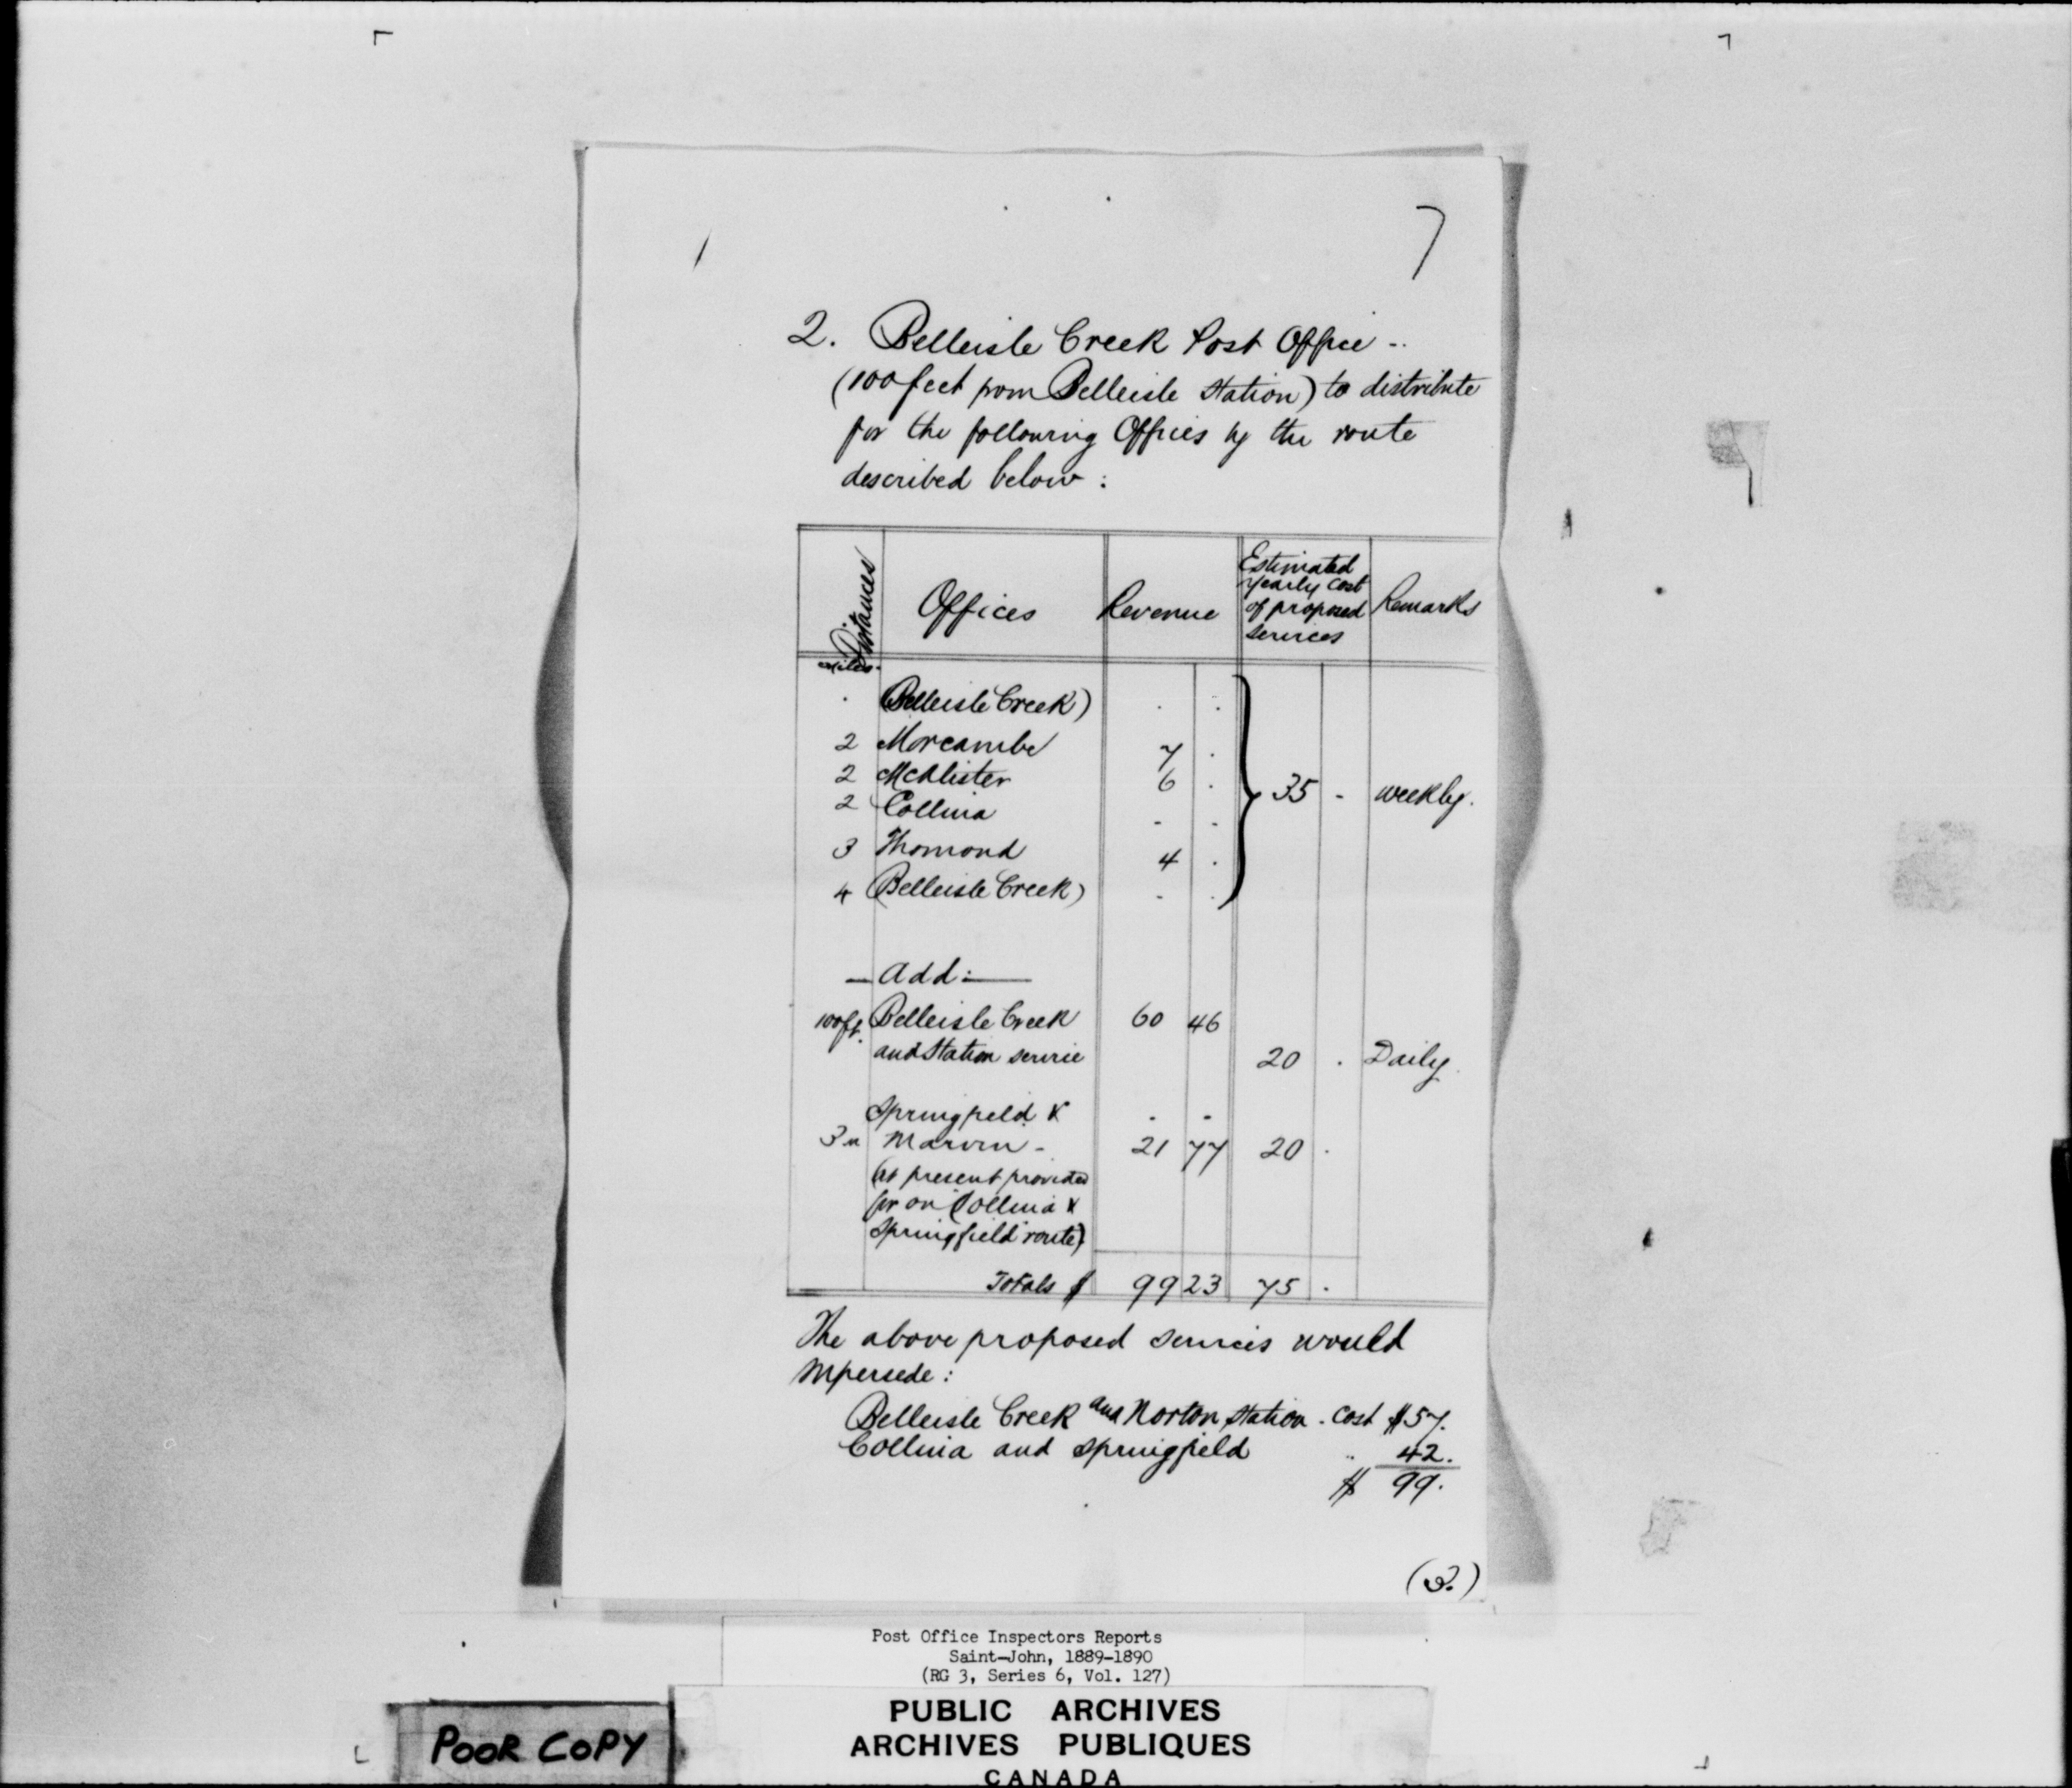 7
2. Belleisle Creek Post Office -
(100 feet from Belleisle Station) to distribute
for the following Offices by the route
described below:
Distances Offices Revenue Estimated yearly cost of proposed services Remarks
miles.
(Belleisle Creek)
2 Morcambe 7 .
2 McAlister 6 . 35 - weekly.
2 Collina - -
3 Thomond 4 .
4 (Belleisle Creek) - .
— Add: —
100ft. Belleisle Creek 60 46
and Station service 20 . Daily.
Springfield & - -
3 m Marvin - 21 77 20 .
(at present provided
for on "Collina &
Springfield" route)
Totals $ 99 23 75 .
The above proposed services would
supersede:
Belleisle Creek and Norton Station . cost $57.
Collina and Springfield " 42.
$ 99.
(3.)
Post Office Inspectors Reports
Saint-John, 1889-1890
(RG 3, Series 6, Vol. 127)
PUBLIC ARCHIVES
ARCHIVES PUBLIQUES
CANADA
POOR COPY